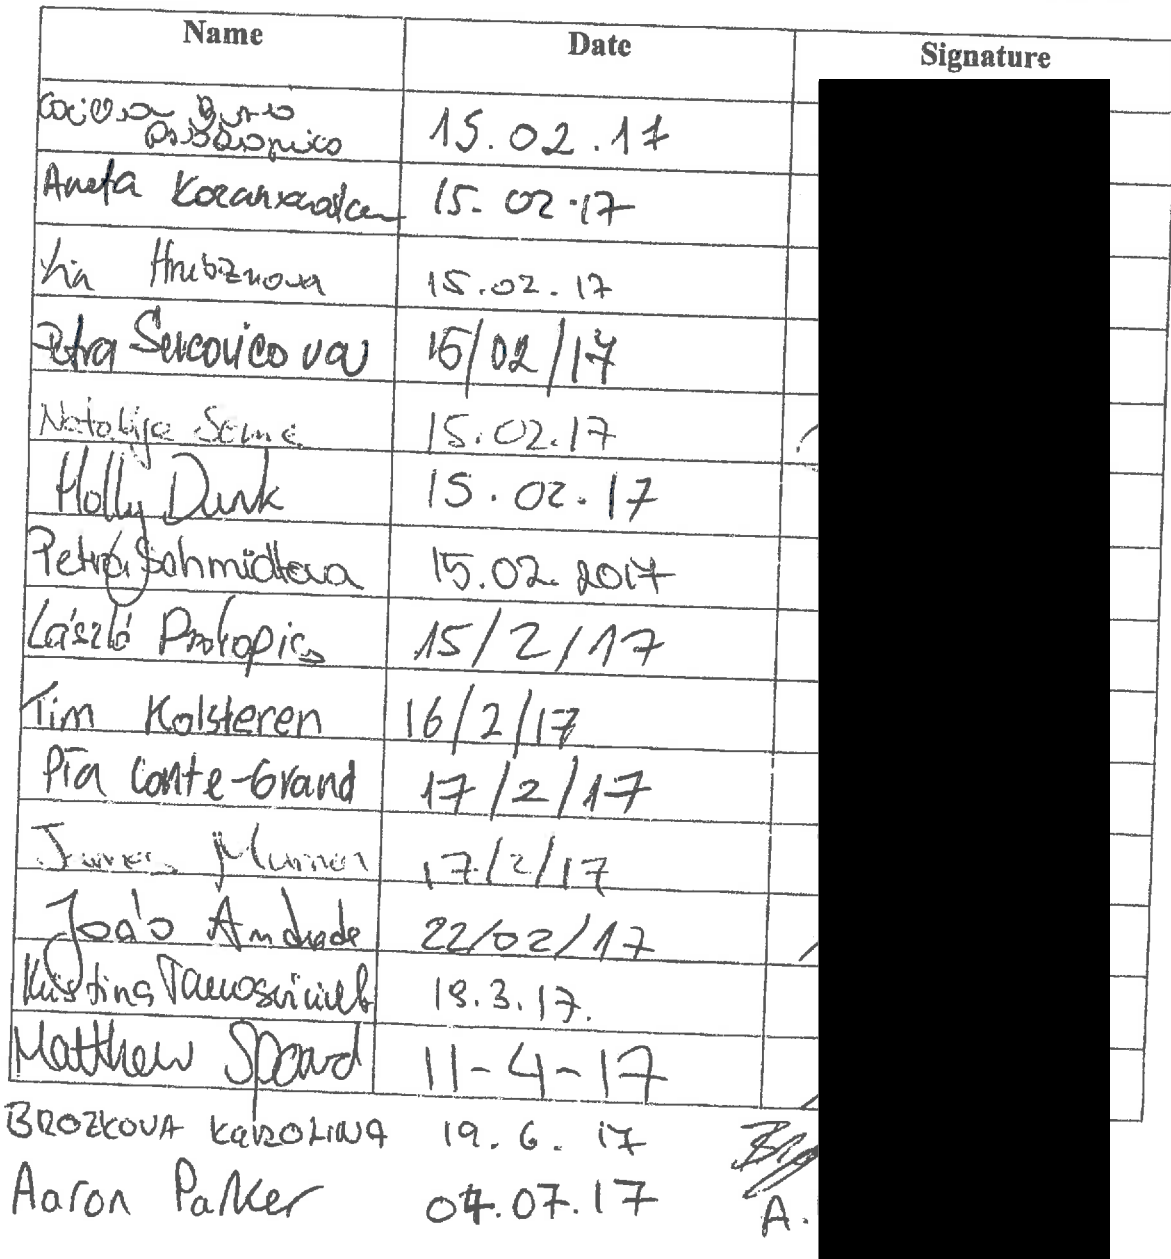 Name Date Signature
15.02.17
Aneta 15.02.17
Hrubznova 15.02.17
Petra Sercovicova 15/02/17
Natalija 15.02.17
Holly Dunk 15.02.17
Petra Schmidtova 15.02.2017
László Prokopics 15/2/17
Tim Kolsteren 16/2/17
Pia Conte-Grand 17/2/17
James 17/2/17
João Andrade 22/02/17
Kristina 18.3.17.
Matthew 11-4-17
BROZKOVA KAROLINA 19.6.17
Aaron Parker 04.07.17 A.